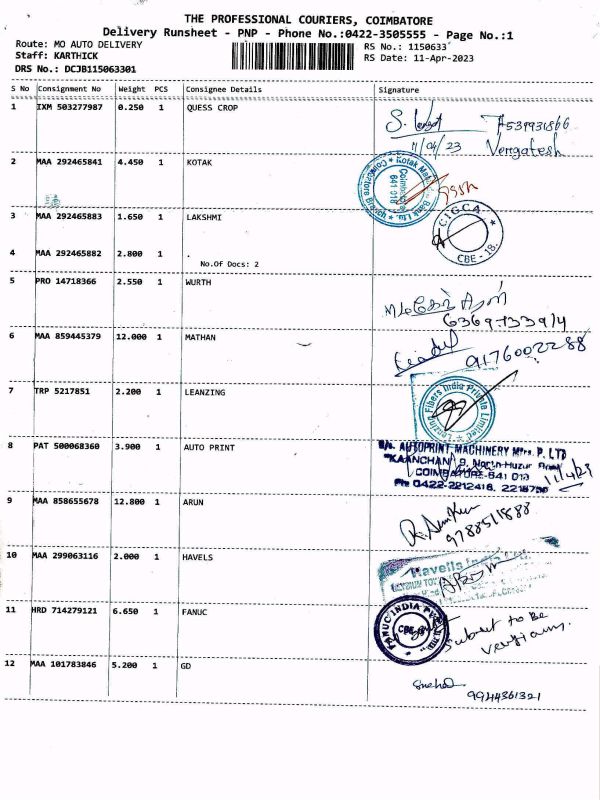 THE PROFESSIONAL COURIERS, COIMBATORE
Delivery Runsheet - PNP - Phone No.:0422-3505555 - Page No.:1
Route: MO AUTO DELIVERY
RS No.: 1150633
Staff: KARTHICK
RS Date: 11-Apr-2023
DRS No.: DCJB115063301
S No Consignment No Weight PCS Consignee Details Signature
1 IXM 503277987 0.250 1 QUESS CROP
7539931866
11/04/23 Vengatesh
2 MAA 292465841 4.450 1 KOTAK
Kotak Mah Bank Ltd.
641 018
3 MAA 292465883 1.650 1 LAKSHMI
CIGCA
CBE - 18.
4 MAA 292465882 2.800 1 .
No.Of Docs: 2
5 PRO 14718366 2.550 1 WURTH
6 MAA 859445379 12.000 1 MATHAN
9176002288
7 TRP 5217851 2.200 1 LEANZING
Fibers India Private Limited
8 PAT 500068360 3.900 1 AUTO PRINT
M/s. AUTOPRINT MACHINERY Mfrs. P. LTD
"KAANCHAN" 9, North Huzur Road
COIMBATORE-641 018
Ph: 0422-2212416, 2218750
11/4/23
9 MAA 858655678 12.800 1 ARUN
9788511888
10 MAA 299063116 2.000 1 HAVELS
Havells India
11 HRD 714279121 6.650 1 FANUC
FANUC INDIA PVT. LTD.
CBE
Subject to be
12 MAA 101783846 5.200 1 GD
Sneha
9944361321